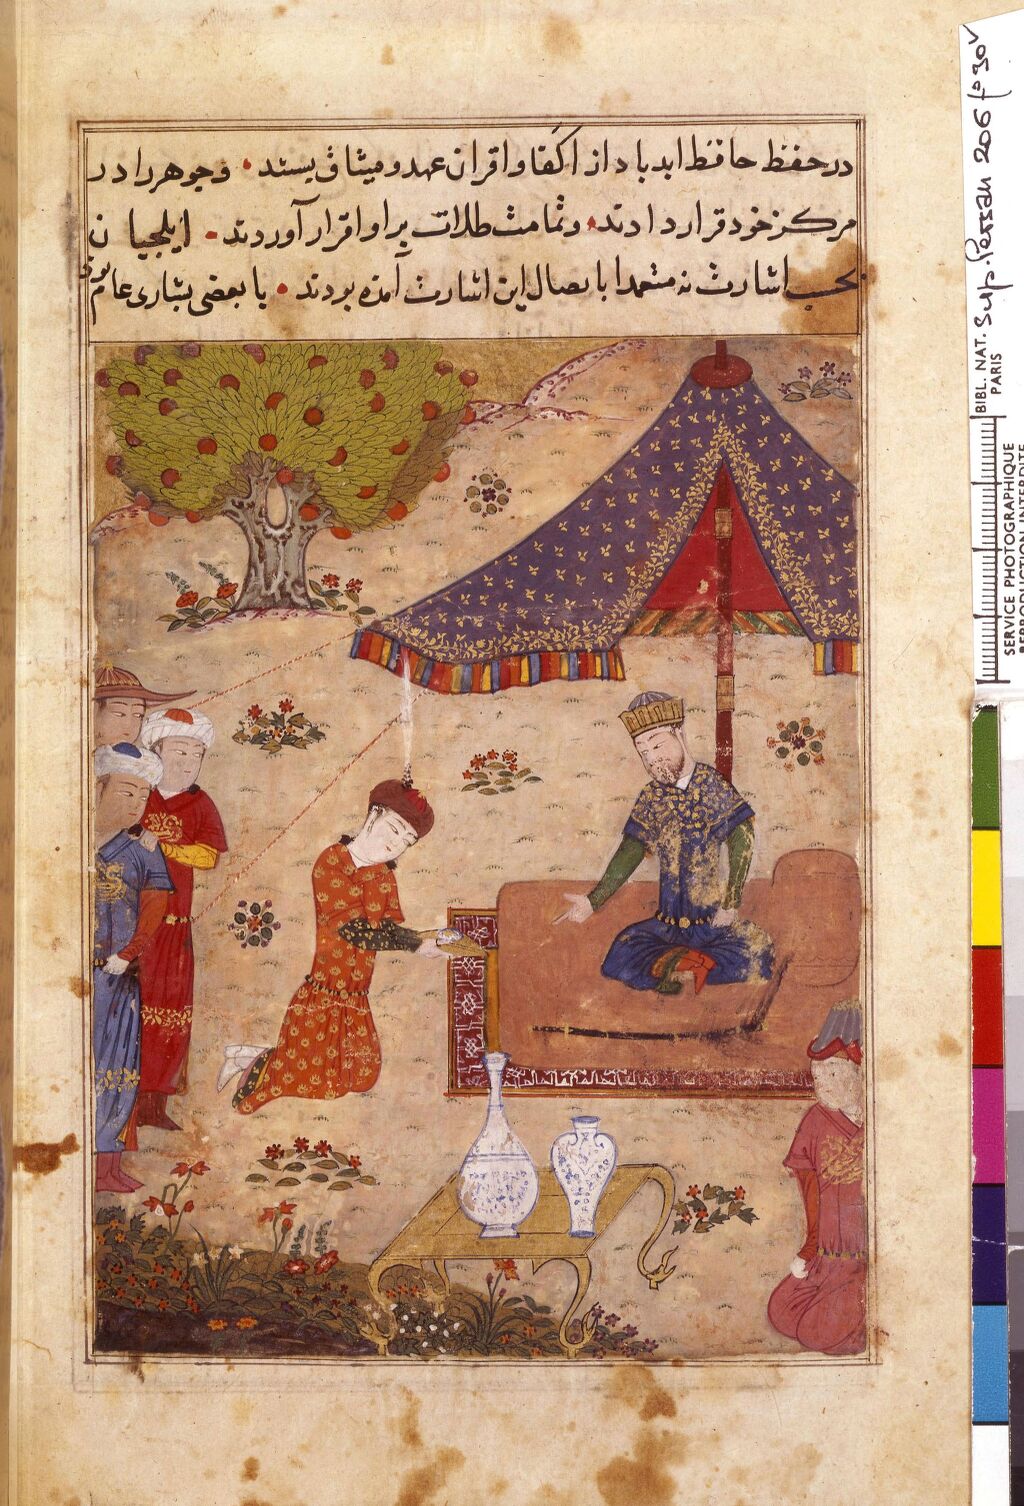 در حفظ حافظ ابد باد از اکفا و اقران عهد و میثاق بستند • و جوهر را در
مرکز خود قرار دادند • و تمامت طلات بر او اقرار آوردند • ایلجیان
بحسب اشارت نه متعمدا بایصال این اشارت آمده بودند • با بعضی بشاری عام
BIBL. NAT. Sup. Persan 206 fo 30v
PARIS
SERVICE PHOTOGRAPHIQUE
REPRODUCTION INTERDITE